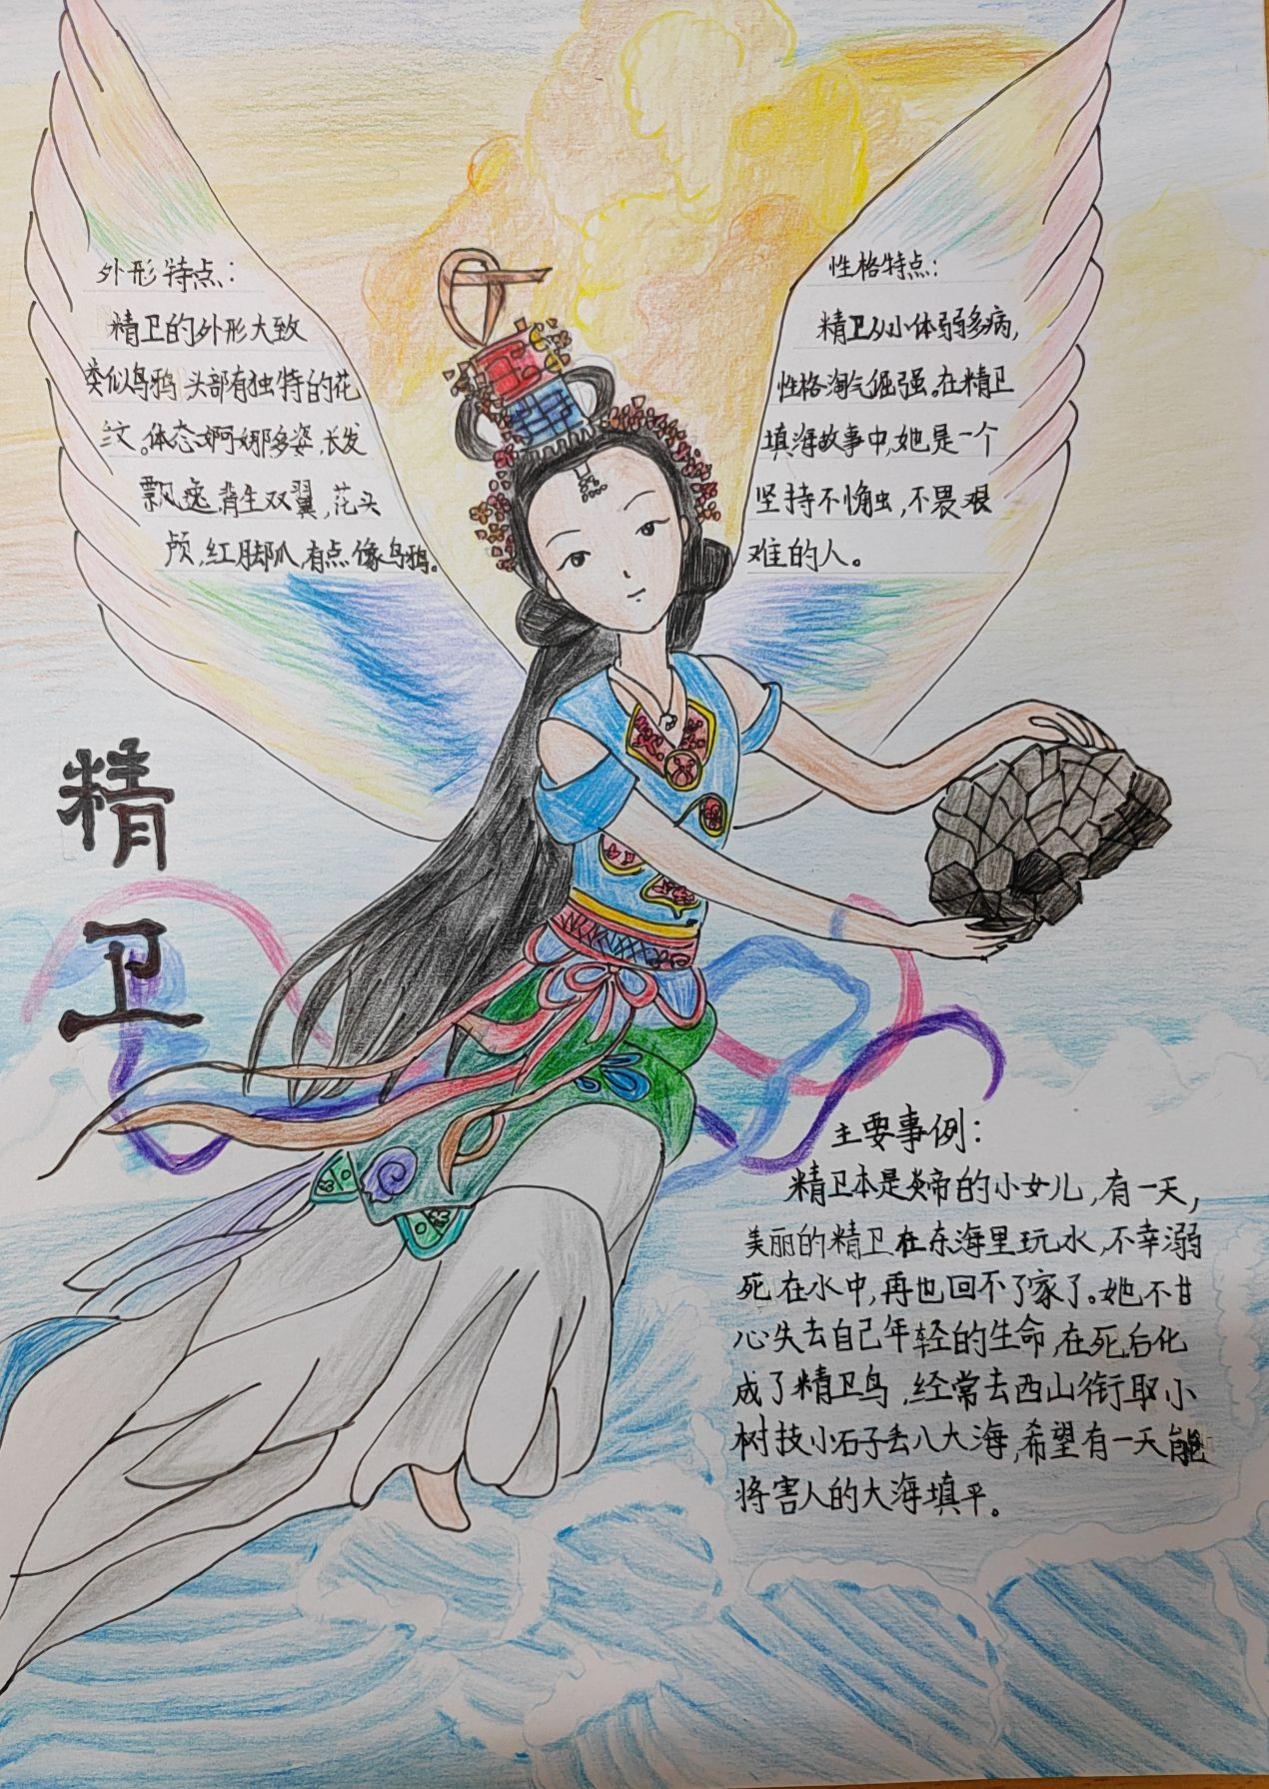 外形特点：
精卫的外形大致
类似乌鸦 头部有独特的花
纹。体态婀娜多姿,长发
飘逸,背生双翼,花头
颅,红脚爪,有点像乌鸦。
性格特点：
精卫从小体弱多病,
性格淘气倔强。在精卫
填海故事中,她是一个
坚持不懈,不畏艰
难的人。
精
卫
主要事例：
精卫本是炎帝的小女儿,有一天,
美丽的精卫在东海里玩水,不幸溺
死在水中,再也回不了家了。她不甘
心失去自己年轻的生命,在死后化
成了精卫鸟,经常去西山衔取小
树技小石子丢八大海,希望有一天能
将害人的大海填平。